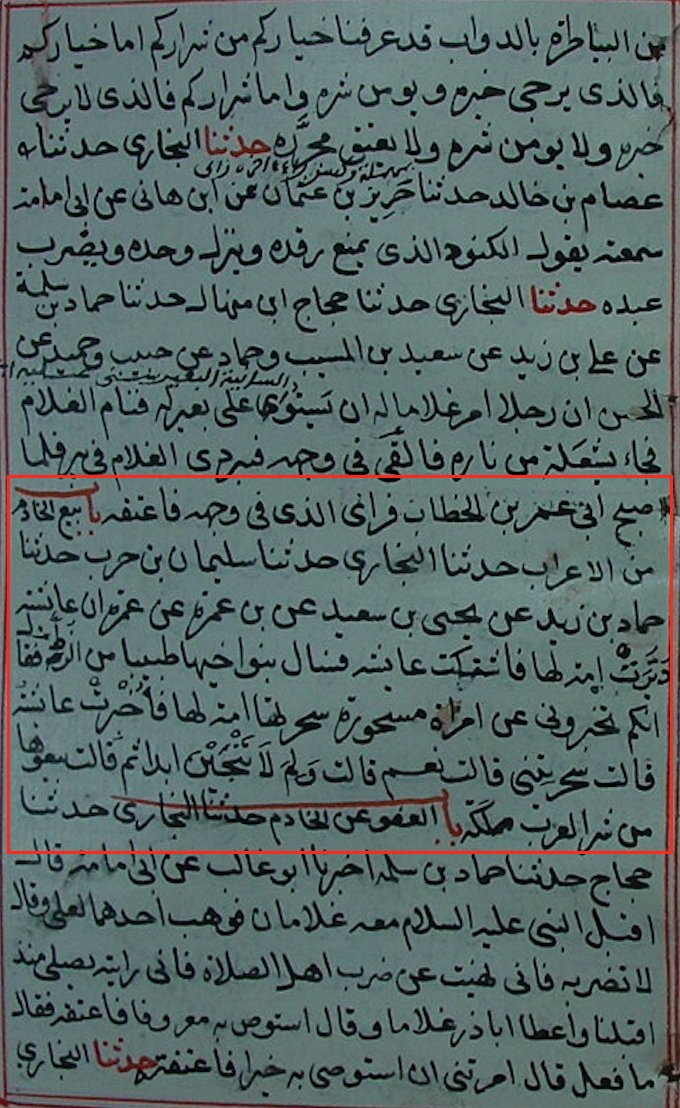 من البياطرة بالدواب قد عرفنا خياركم من شراركم اما خياركم
فالذى يرجى خيره ويومن شره واما شراركم فالذى لا يرجى
خيره ولا يومن شره ولا يعتق محرره حدثنا البخارى حدثنا
عصام بن خالد حدثنا حريز بن عثمان عن ابن هانى عن ابى امامة
سمعته يقول الكنود الذى يمنع رفده وينزل وحده ويضرب
عبده حدثنا البخارى حدثنا حجاج ابن منهال حدثنا حماد بن سلمة
عن على بن زيد عن سعيد بن المسيب وحماد عن حبيب وحميد عن
الحسن ان رجلا امر غلاما له ان يسنو على بعير له فنام الغلام
فجاء بشعلة من نار فالقى فى وجهه فتردى الغلام فى بير فلما
اصبح اتى عمر بن الخطاب فراى الذى فى وجهه فاعتقه باب بيع الخادم
من الاعراب حدثنا البخارى حدثنا سليمان بن حرب حدثنا
حماد بن زيد عن يحيى بن سعيد عن بن عمرة عن عمرة ان عائشة
دبرت امة لها فاشتكت عائشه فسال بنو اخيها طبيبا من الزط فقال
انكم تخبرونى عن امراة مسحورة سحرتها امة لها فأُخْبِرَتْ عائشة
قالت سحرتينى قالت نعم قالت وَلِمَ لا تنجين ابدا ثم قالت بيعوها
من شر العرب ملكة باب العفو عن الخادم حدثنا البخارى حدثنا
حجاج حدثنا حماد بن سلمه اخبرنا ابو غالب عن ابى امامة قال
اقبل النبى عليه السلام معه غلامان فوهب احدهما لعلى وقال
لا تضربه فانى نهيت عن ضرب اهل الصلاة فانى رايته يصلى منذ
اقبلنا واعطا اباذر غلاما وقال استوص به معروفا فاعتقه فقال
ما فعل قال امرتنى ان استوصى به خيرا فاعتقته حدثنا البخارى